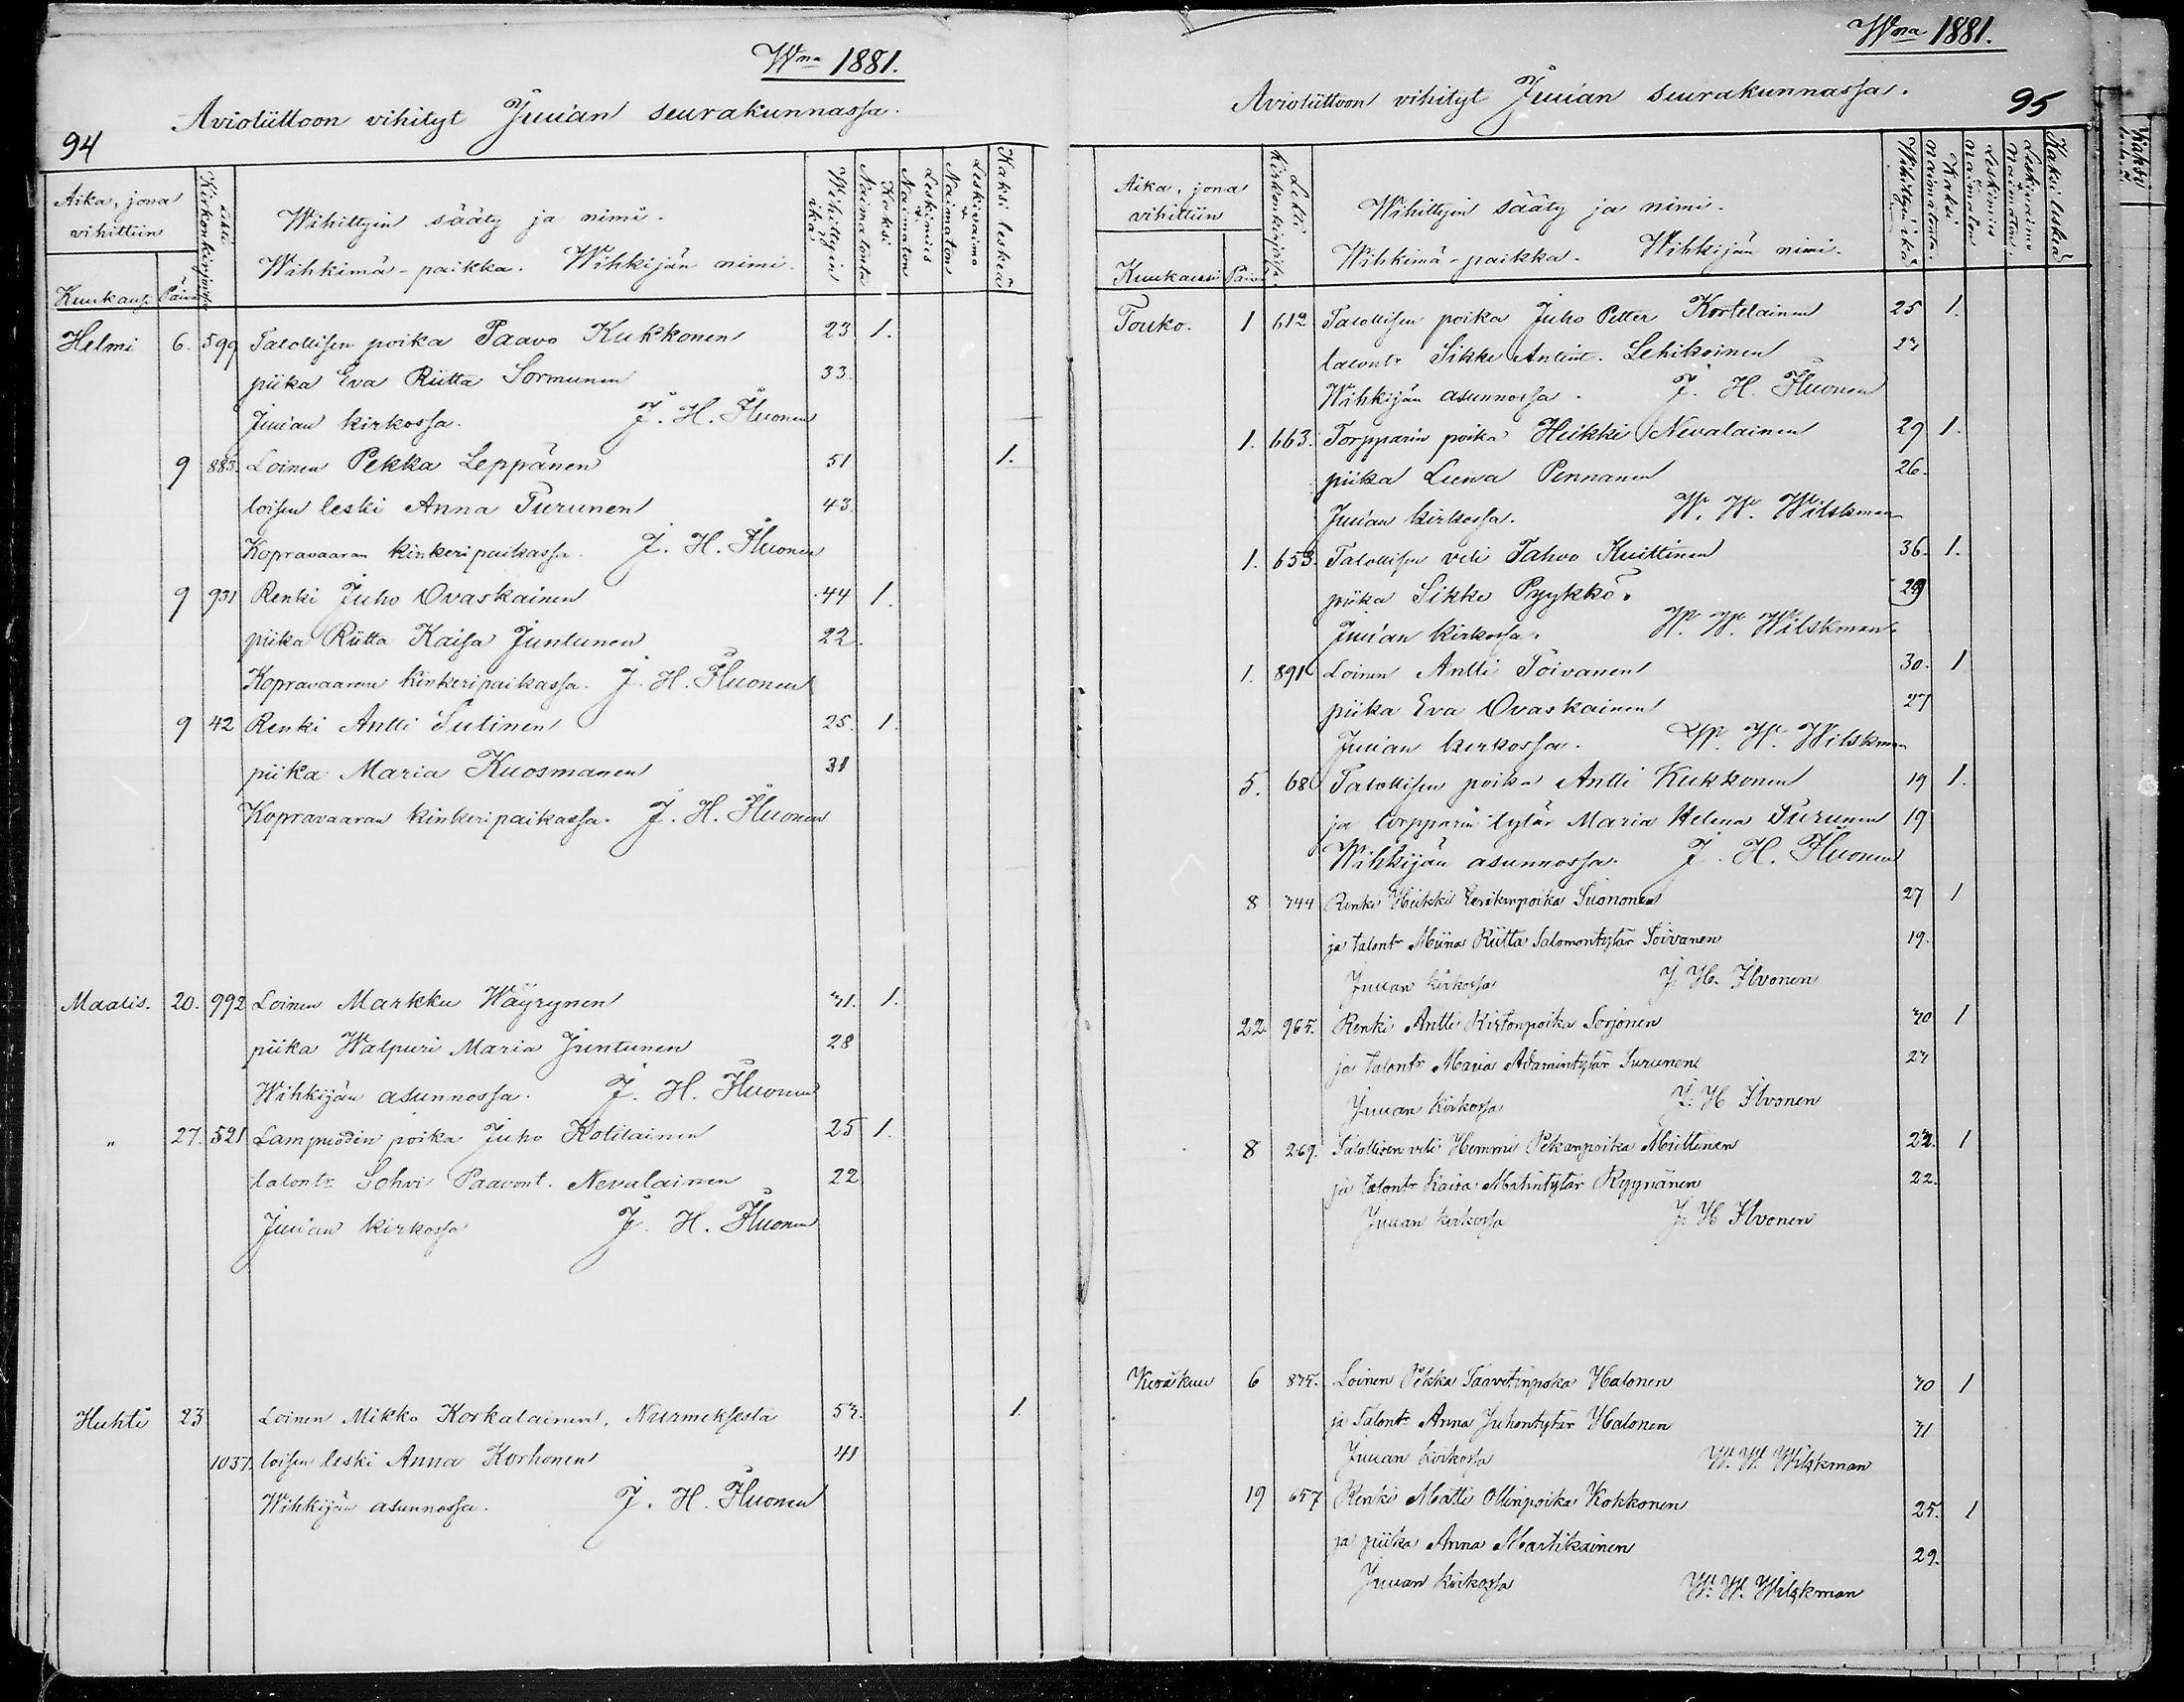 Wna 1881.
Avioliittoon vihityt Juuan seurakunnassa.
94
Aika, jona vihittiin
Kuukausi
Päivä
Lehti Kirkonkirjassa
Wihittyin sääty ja nimi.
Wihkimä-paikka. Wihkijän nimi.
Wihittyin ikä
Kaksi Naimatonta
Leskimies & Naimaton
Leskivaimo & Naimaton
Kaksi leskeä
Helmi 6. 599 Talollisen poika Paavo Kukkonen 23 1.
piika Eva Riitta Sormunen 33
Juuan kirkossa. J. H. Fluonen
9 883. Loinen Pekka Leppänen 51 1.
loisen leski Anna Turunen 43.
Kopravaaran kinkeripaikassa. J. H. Fluonen
9 931 Renki Juho Ovaskainen 44 1.
piika Riitta Kaisa Juntunen 22.
Kopravaaran kinkeripaikassa. J. H. Fluonen
9 42 Renki Antti Sutinen 25. 1.
piika Maria Kuosmanen 31
Kopravaaran kinkeripaikassa. J. H. Fluonen
Maalis. 20. 992 Loinen Markku Wäyrynen 31. 1.
piika Walpuri Maria Juntunen 28
Wihkijän asunnossa. J. H. Fluonen
" 27. 521 Lampuodin poika Juho Kotilainen 25 1.
talontr Sohvi Paavont. Nevalainen 22
Juuan kirkossa J. H. Fluonen
Huhti 23 Loinen Mikko Korkalainen, Nurmeksesta 53. 1.
1037. loisen leski Anna Korhonen 41
Wihkijän asunnossa. J. H. Fluonen
Wna 1881.
Avioliittoon vihityt Juuan seurakunnassa.
95
Aika, jona vihittiin
Kuukausi
Päivä
Lehti Kirkonkirjassa.
Wihittyin sääty ja nimi.
Wihkimä-paikka. Wihkijän nimi.
Wihittyin ikä
Kaksi naimatonta.
Leskimies & Naimaton
Leskivaimo & Naimaton.
Kaksi leskeä
Touko. 1 612 Talollisen poika Juho Petter Kortelainen 25 1.
talontr Sikke Antint. Lehikoinen 23
Wihkijän asunnossa. J. H. Fluonen
1. 663. Torpparin poika Heikki Nevalainen 29 1.
piika Liena Pennanen 26.
Juuan kirkossa. W. W. Wilskman
1. 653. Talollisen veli Tahvo Kuittinen 36. 1.
piika Sikke Pyykkö. 29
Juuan kirkossa. W. W. Wilskman.
1. 891 Loinen Antti Toivanen 30. 1
piika Eva Ovaskainen 27
Juuan kirkossa. W. W. Wilskman
5. 68 Talollisen poika Antti Kukkonen 19 1.
ja torpparin tytär Maria Helena Turunen 19
Wihkijän asunnossa. J. H. Fluonen
8 344 Renki Heikki Eerikinpoika Suononen 27 1
ja talontr Miina Riitta Salomontytär Toivanen 19.
Juuan kirkossa J. H. Flvonen
22. 965. Renki Antti Ristonpoika Sorjonen 30 1
ja talontr Maria Adamintytär Turunen 23
Juuan kirkossa J. H Flvonen
8 269. Talollisen veli Hemmi Pekanpoika Miettinen 23. 1
ja talontr Kaisa Matintytär Ryynänen 22.
Juuan kirkossa J. H Flvonen
Kesäkuu 6 835. Loinen Pekka Taavetinpoika Halonen 30 1
ja Talontr Anna Juhontytär Halonen 31
Juuan kirkossa W. W. Wilskman
19 657 Renki Matti Ollinpoika Kokkonen 25. 1
ja piika Anna Martikainen 29.
Juuan kirkossa W. W. Wilskman